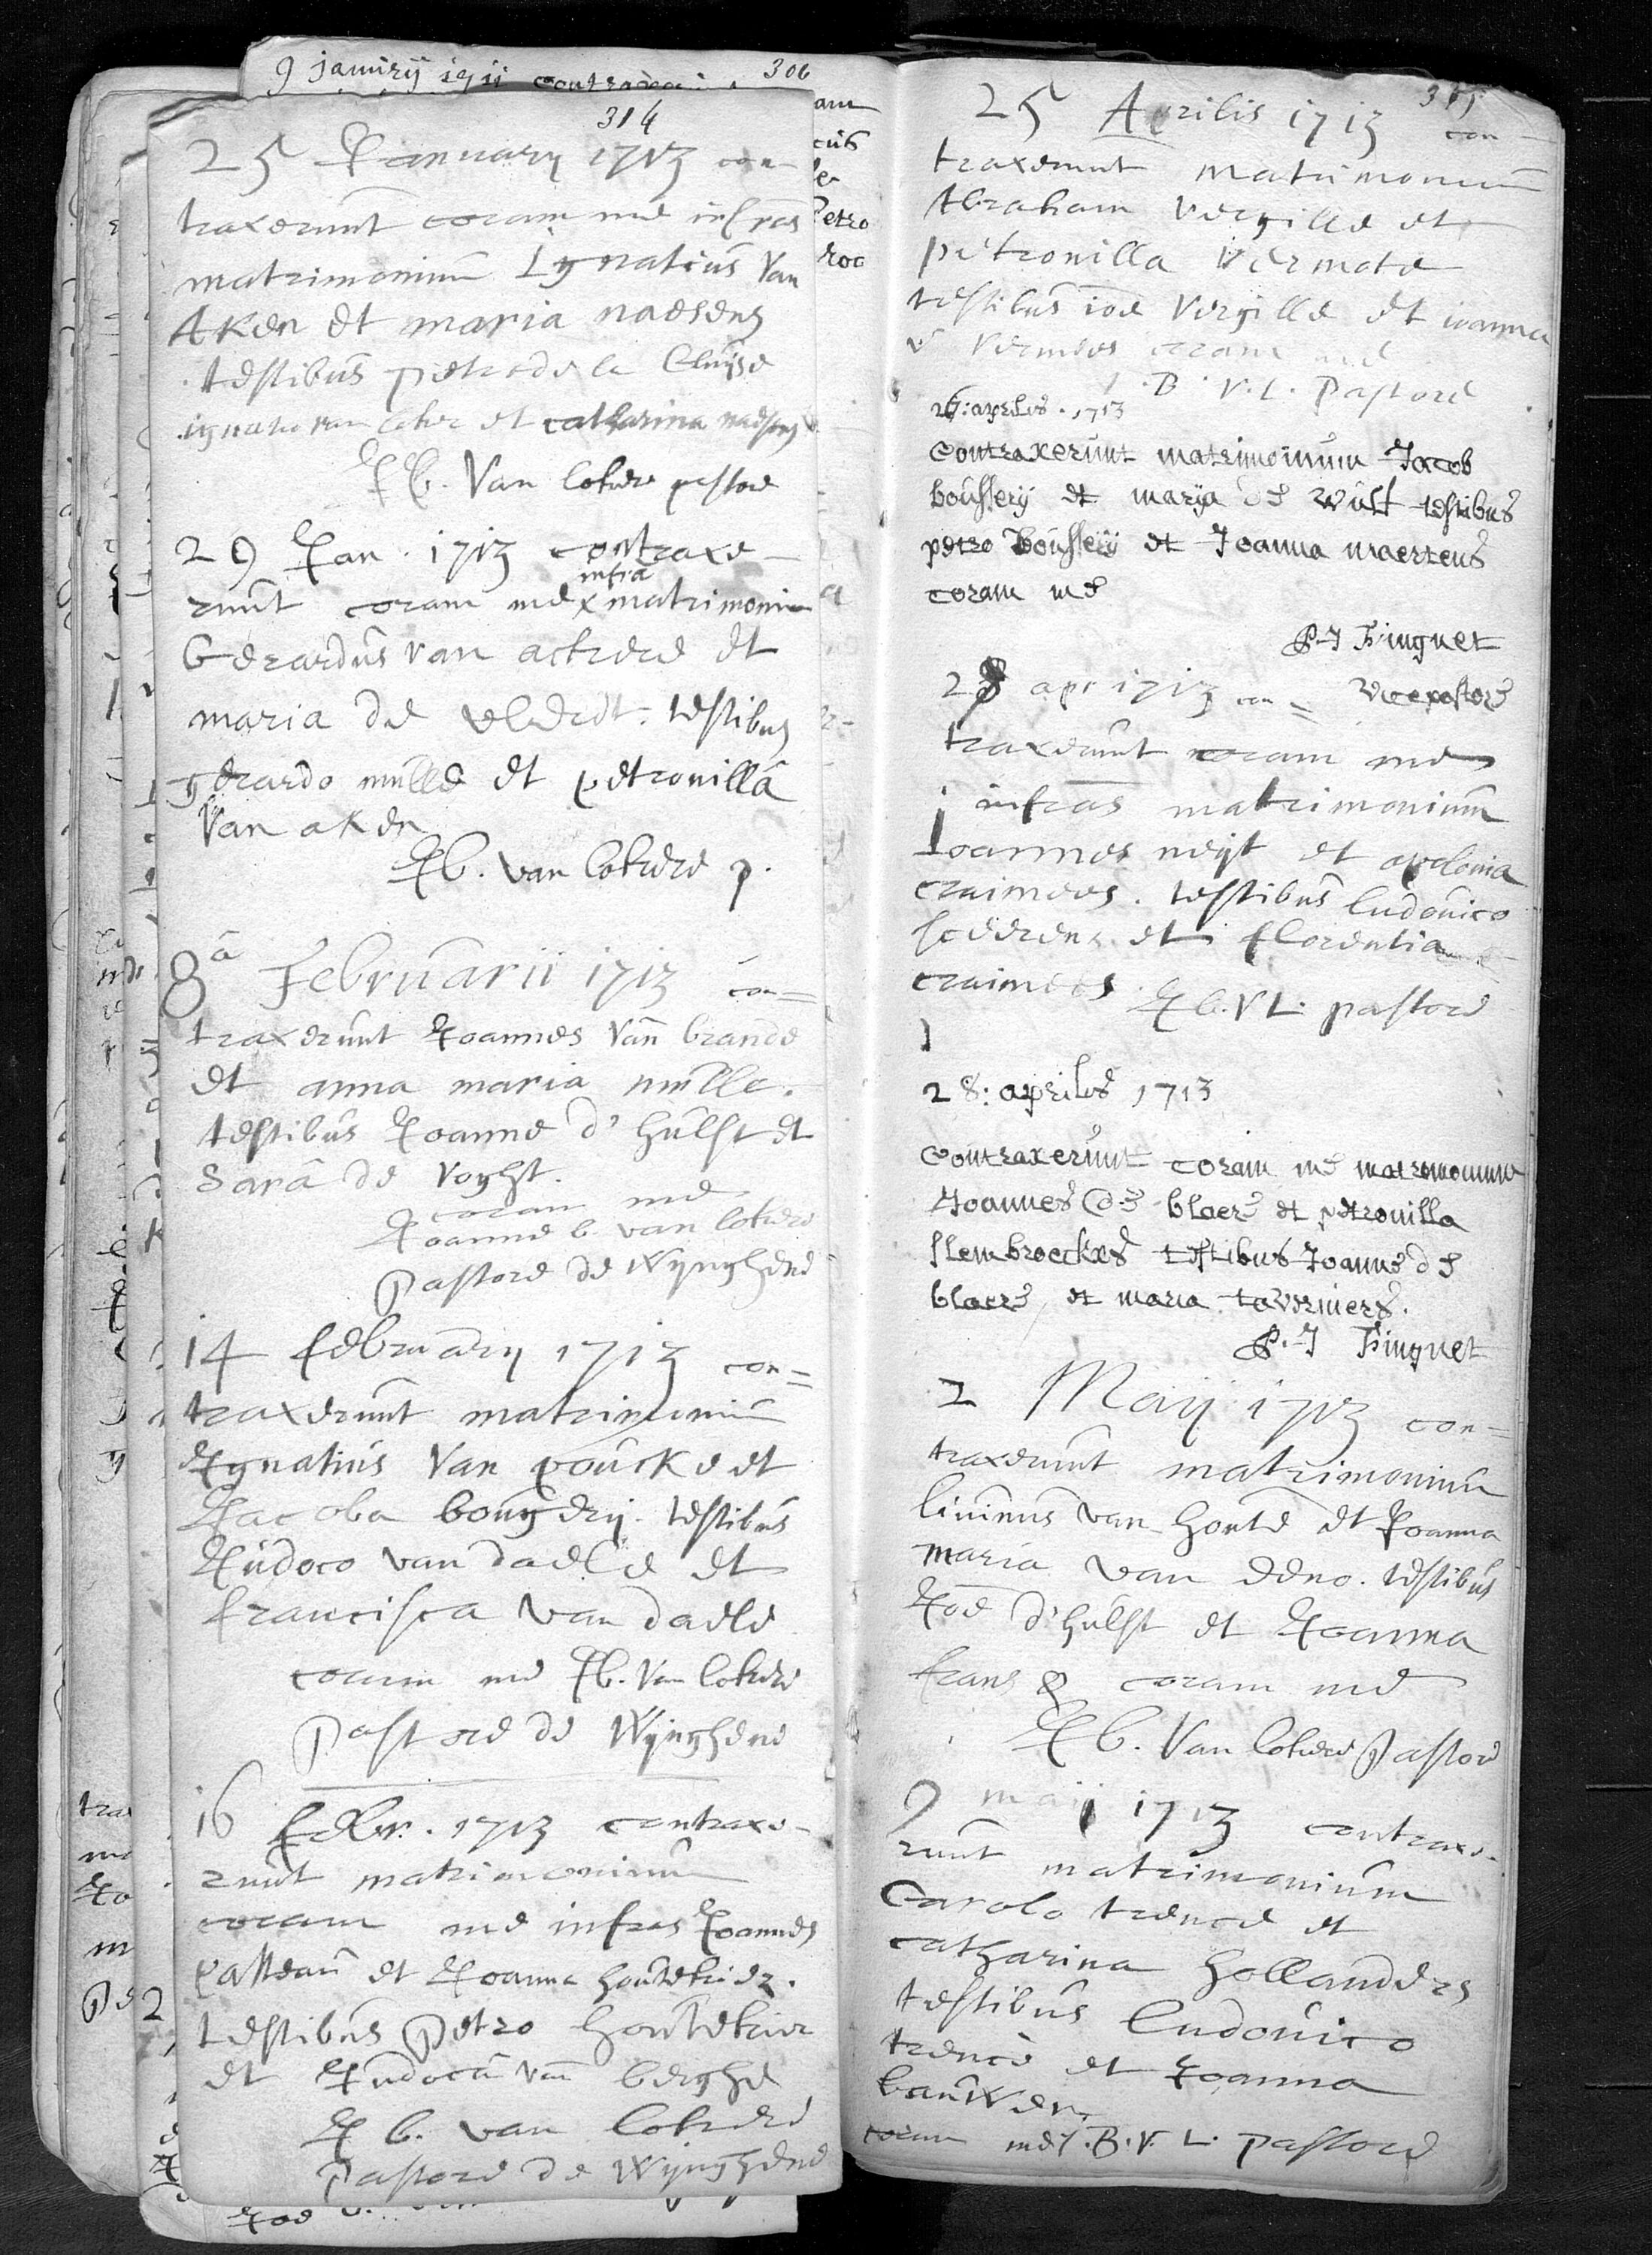 9 januirij 1711 contraxer
306
314
25 January 1713 con-
traxerunt coram me infras
matrimonium Ignatius Van
Aken et maria naesens
testibus pietro de la Cluijse
ignatio van loker et catharina naesens
J b. Van lokere pastore
29 Jan. 1713 contraxe-
infra
runt coram me x matrimoniu
Gerardus van ackere et
maria de vleedt. testibus
gerardo mulle et petronilla
Van aken
J b. van lokere p.
8a Februarii 1713 con=
traxerunt Joannes Van brande
et anna maria mulle.
testibus Joanne d'hulst et
Sara de voght.
coram me
Joanne b. van lokere
pastore de Wijnghene
14 februarij 1713 con=
traxerunt matrimonium
Ignatius Van poucke et
Jacoba bousserij. testibus
Judoco van daele et
francisca van daele
coram me J b. Van lokere
pastore de Wijnghene
16 febr. 1713 contraxe-
runt matrimonium
coram me infras Joannes
casteau et Joanna houtekier.
testibus petro houtekier
et Judoca van berghe
J b. van lokere
pastore de Wijnghene
315
25 Aprilis 1713 con
traxerunt matrimonium
Abraham Vergille et
petronilla Vermote
testibus ioe Vergille et ioanna
coram me
J.B.V.L. Pastore
26: apriles. 1713
Contraxerunt matrimoinum Jacob
bousserij et marija de Wulf testibus
petro Bousserij et Joanna maertens
coram me
P.J Hinguet
Vicepastore
28 apr 1713 con=
traxerunt coram me
infras matrimonium
Joannes neijt et apolonia
craimees. testibus ludovico
sceerens et florentia
craimees. J b. V L. pastore
28: apriles 1713
Contraxerunt coram me matromonium
Joannes de blaere et petronilla
slembroeckxs testibus Joanne de
blaere et maria taverniers.
P.J Hinguet
2 Maij 1713 con=
traxerunt matrimonium
livinus van houte et Joanna
maria van eeno. testibus
Joe d'hulst et Joanna
frans & coram me
J b. Van lokere pastore
9 maij 1713 contraxe-
runt matrimonium
Carolo trence et
catharina hollanders
testibus ludovico
trence et Joanna
bauwen
coram me J.B.V.L. pastore